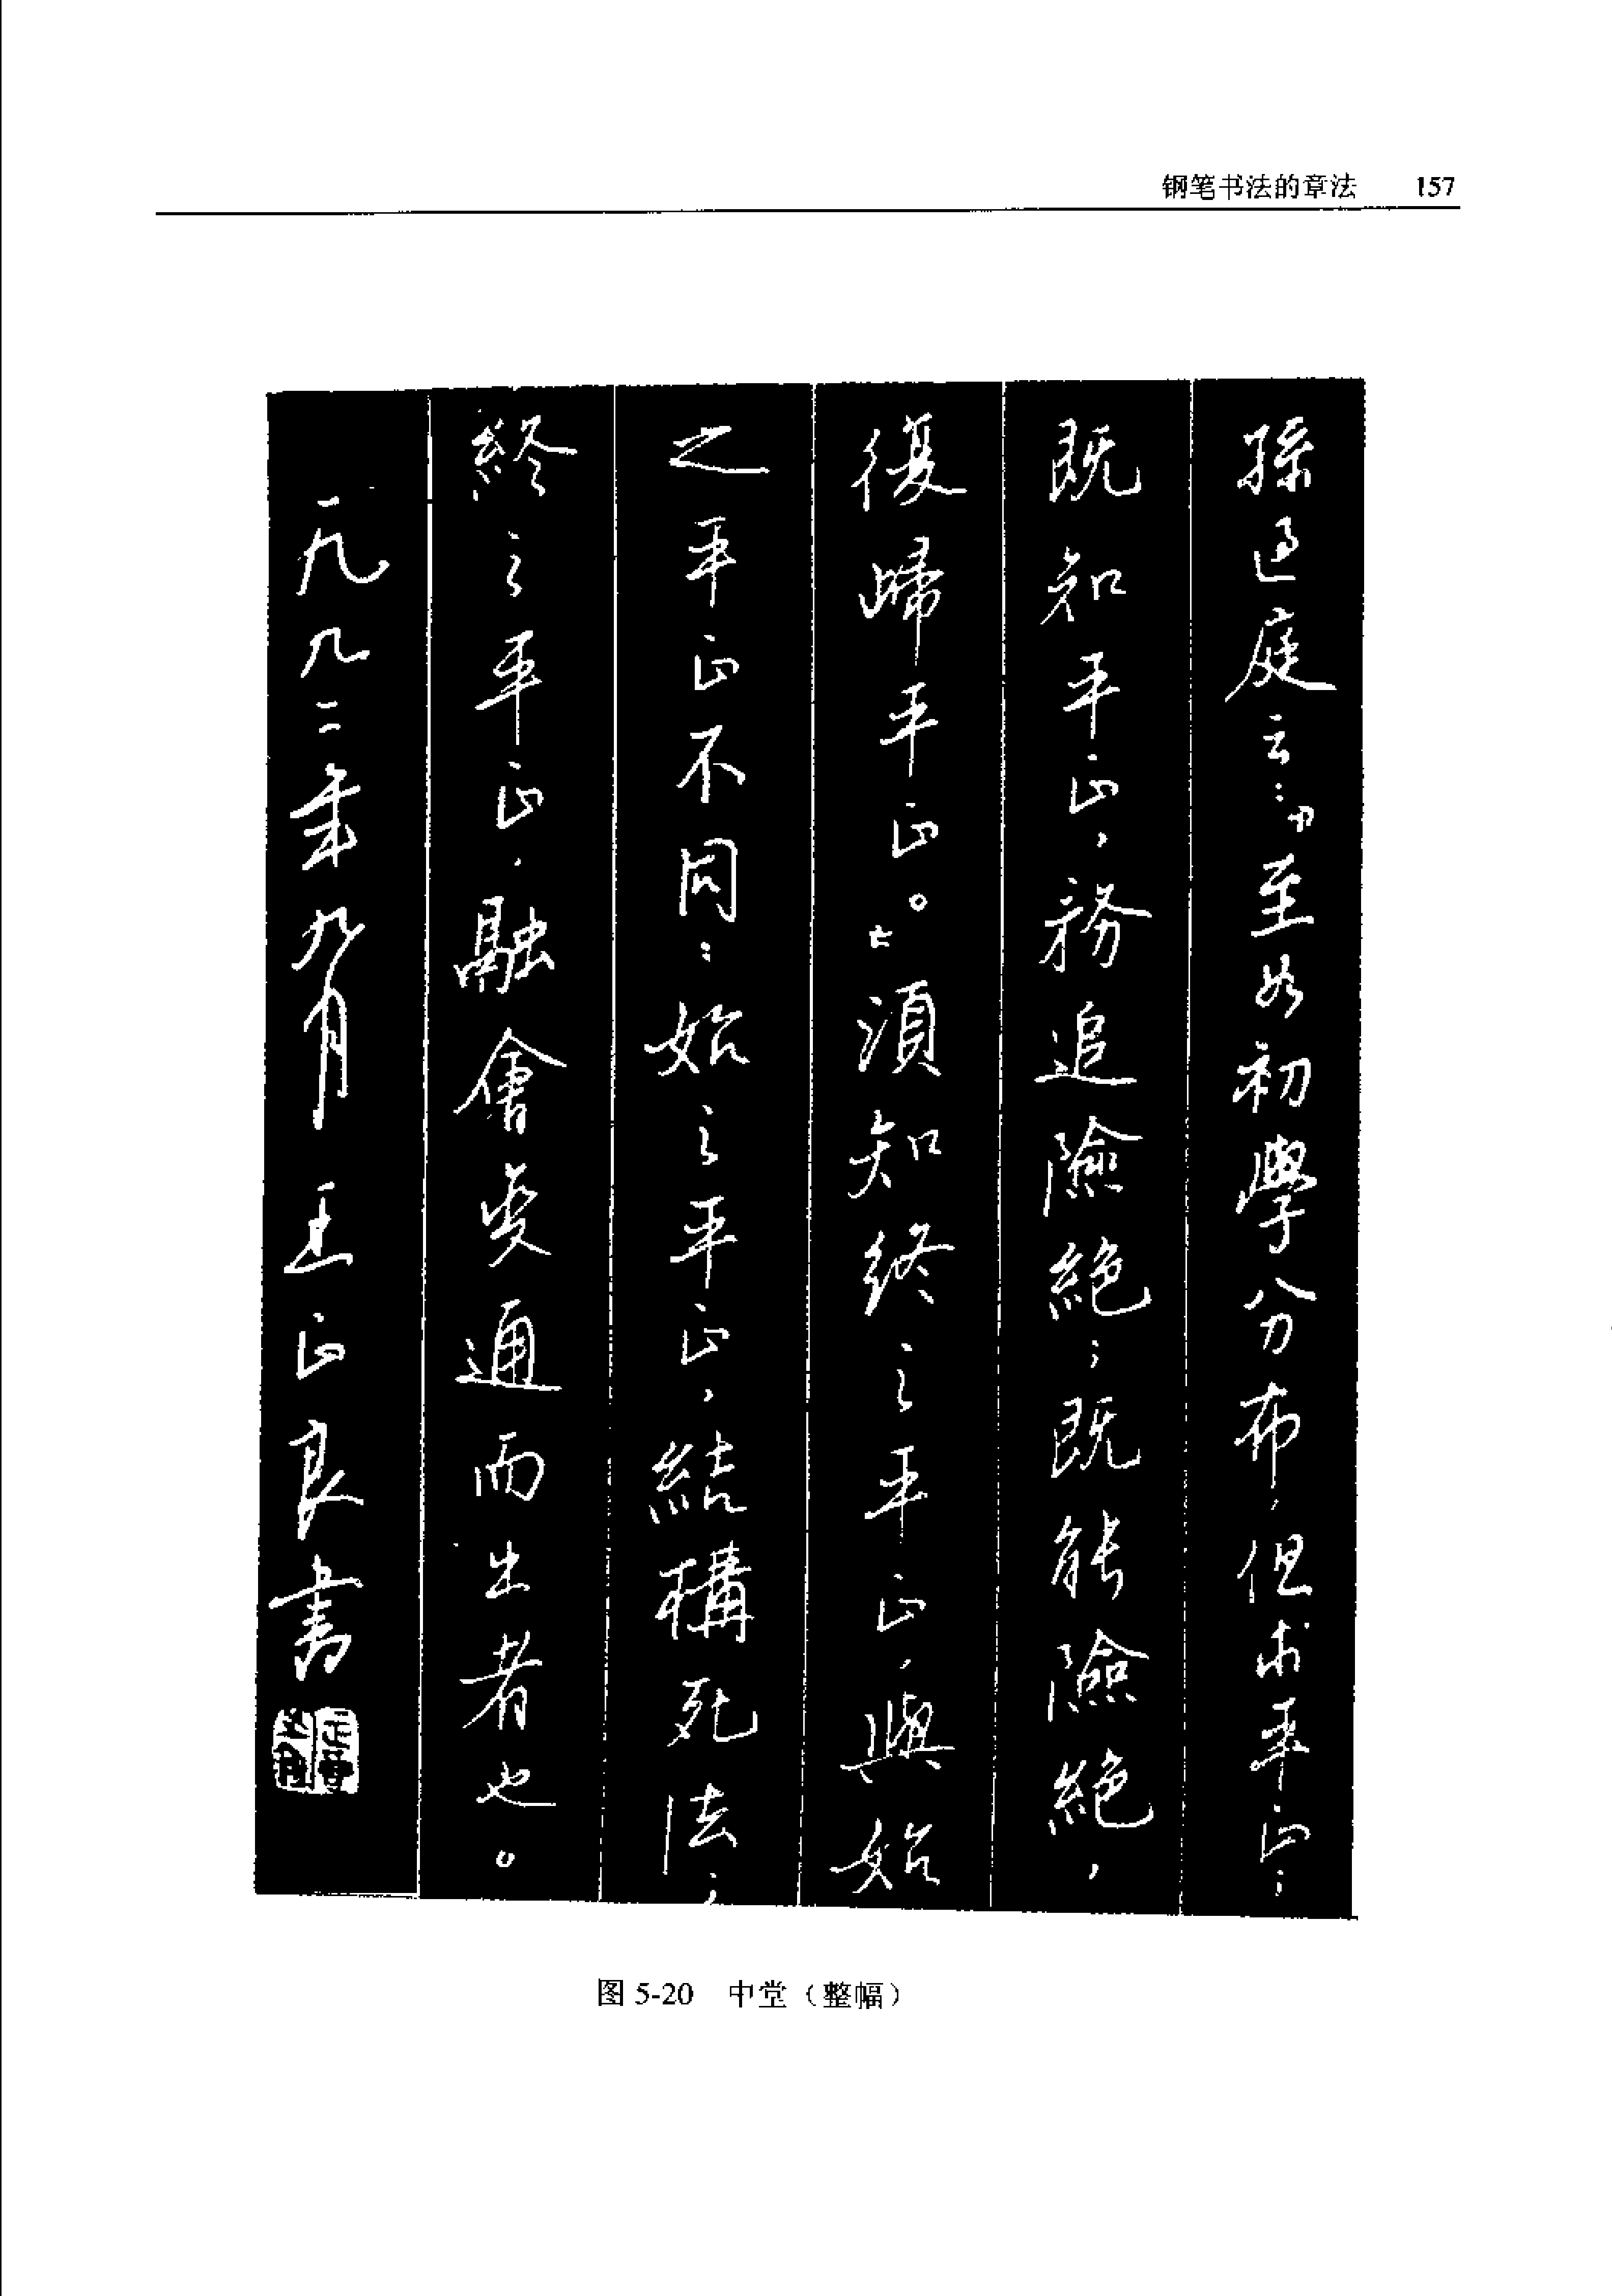 钢笔书法的章法 157
孫过庭云：“至如初學分布，但求平正；
既知平正，務追險絕；既能險絕，
復歸平正。”須知終之平正，與始
之平正不同：始之平正，結構死法；
終之平正，融會貫通而出者也。
一九九二年九月王正良書
图 5-20 中堂（整幅）